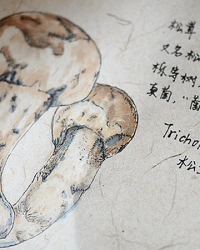 松茸
又名松
栎等树
東菌,"菌
Tricho
松